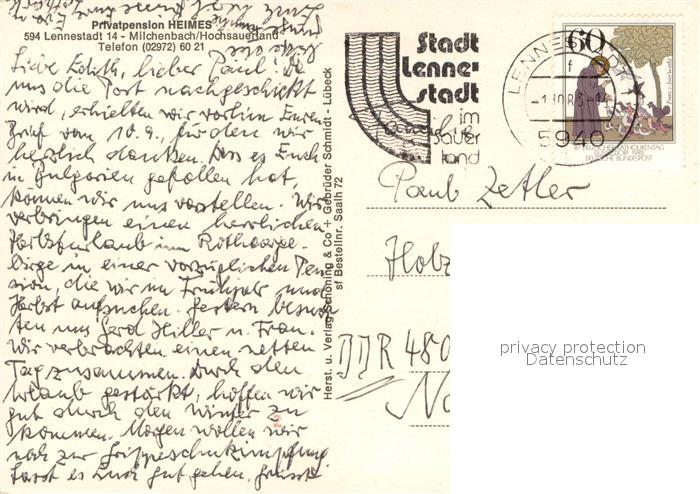 Privatpension HEIMES
594 Lennestadt 14 - Milchenbach/Hochsauerland
Telefon (02972) 60 21
Liebe Edith, lieber Paul! Da
uns die Post nachgeschickt
wird, erhielten wir vorhin Euren
Brief vom 10.9., für den wir
herzlich danken. Dass es Euch
in Bulgarien gefallen hat,
können wir uns vorstellen. Wir
verbringen einen herrlichen
Herbsturlaub im Rothaarge-
birge in einer vorzüglichen Pen
sion, die wir im Frühjahr und
Herbst aufsuchen. Gestern besuch
ten uns Gerd Hiller u. Frau.
Wir verbrachten einen netten
Tag zusammen. Durch den
Urlaub gestärkt, hoffen wir
gut durch den Winter zu
kommen. Morgen wollen wir
noch zur Grippeschutzimpfung
Lasst es Euch gut gehen.
Herst. u. Verlag Schöning & Co + Gebrüder Schmidt - Lübeck
sf Bestellnr. Saalh 72
Stadt
Lenne
stadt
im
Sauer
land
LENNESTADT
5940
60
DEUTSCHE BUNDESPOST
Paul Zetler
Holz
DDR 480
Na
privacy protection
Datenschutz